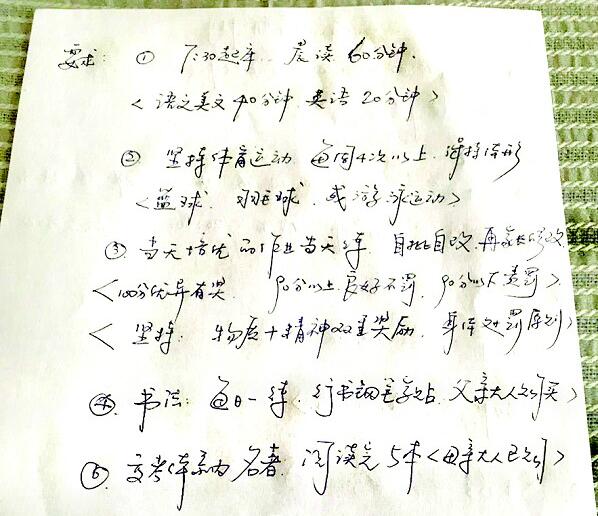 要求: ① 7:30起床. 晨读 60分钟.
<语文美文 40分钟 英语 20分钟>
② 坚持体育运动 每周4次以上. 保持体形
<篮球. 羽毛球. 或游泳运动>
③ 当天培优的作业当天练. 自批自改. 再家长修改
<100分优异有奖. 90分以上良好不罚. 90分以下责罚>
<坚持: 物质+精神双重奖励. 身体处罚原则>
④. 书法: 每日一练. 行书钢笔字帖. 父亲大人已购买>
⑤ 高考体系内名著. 阅读完5本<母亲大人已购>